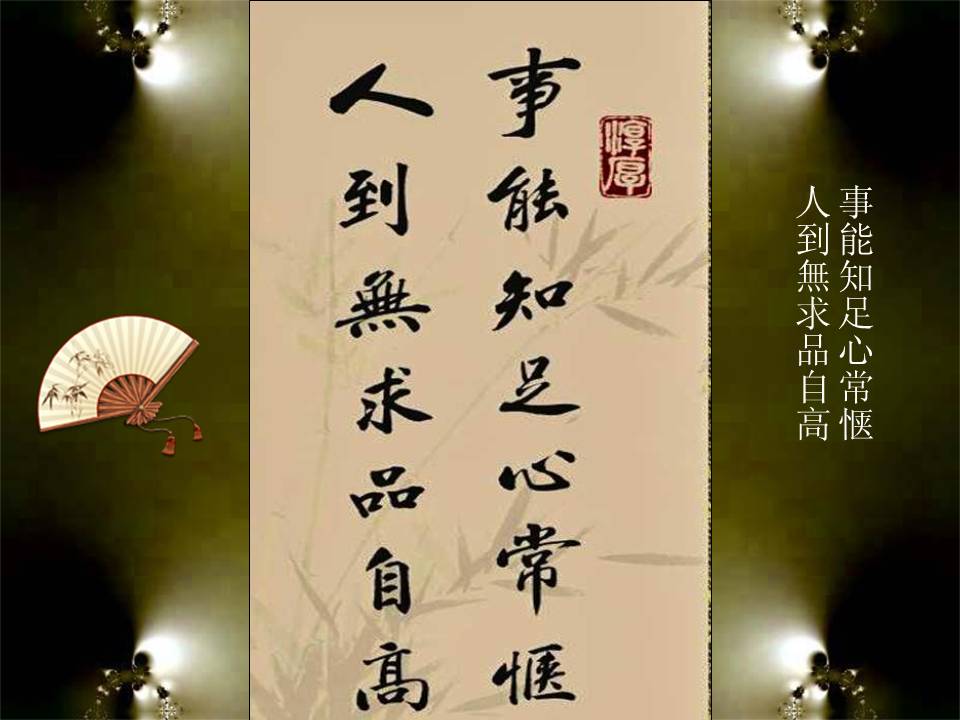 淳厚
事能知足心常愜
人到無求品自高
事能知足心常愜
人到無求品自高